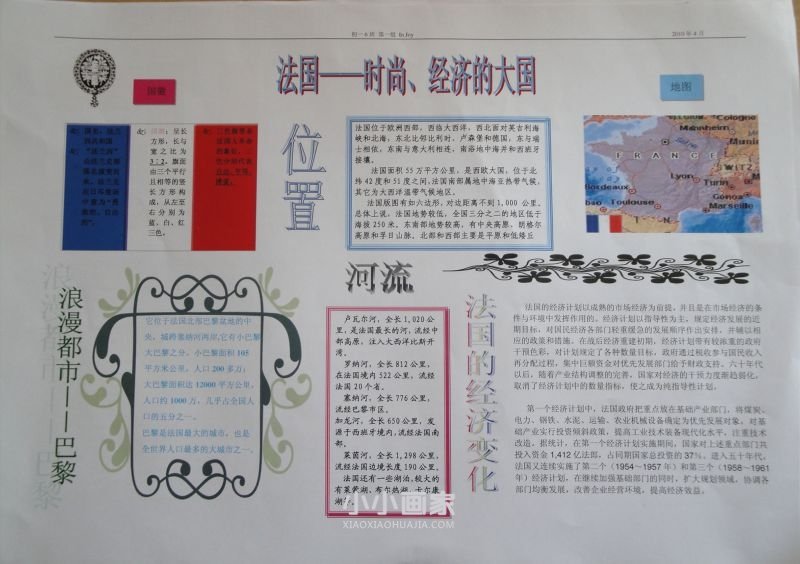 初一6班 第一组 In Joy
2010年4月
法国——时尚、经济的大国
国徽
地图
国旗：呈长
方形，长与
宽之比为
3:2。旗面
由三个平行
且相等的竖
长方形构
成，从左至
右分别为
蓝、白、红
三色。
位置
法国位于欧洲西部，西临大西洋，西北面对英吉利海
峡和北海，东北比邻比利时、卢森堡和德国，东与瑞
士相依，东南与意大利相连，南沿地中海并和西班牙
接壤。
法国面积 55 万平方公里，是西欧大国，位于北
纬 42 度和 51 度之间，法国南部属地中海亚热带气候，
其它为大西洋温带气候地区。
法国版图有如六边形，对边距离不到 1,000 公里，
总体上说，法国地势较低，全国三分之二的地区低于
海拔 250 米。东南部地势较高，有中央高原、朗格尔
高原和孚日山脉。北部和西部主要是平原和低矮丘
Cologne
Mannheim
FRANCE
Lyon
Turin
Bordeaux
Genoa
Toulouse
Marseille
浪漫都市——巴黎
它位于法国北部巴黎盆地的中
央，城跨塞纳河两岸，它有小巴黎
大巴黎之分。小巴黎面积 105
平方米公里，人口 200 多万；
大巴黎面积达 12000 平方公里，
人口约 1000 万，几乎占全国人
口的五分之一。
巴黎是法国最大的城市，也是
全世界人口最多的大城市之一。
河流
卢瓦尔河，全长 1,020 公
里，是法国最长的河，流经中
部高原，注入大西洋比斯开
湾。
罗纳河，全长 812 公里，
在法国境内 522 公里，流经
法国 20 个省。
塞纳河，全长 776 公里，
流经巴黎市区。
加龙河，全长 650 公里，发
源于西班牙境内，流经法国南
部。
莱茵河，全长 1,298 公里，
流经法国边境长度 190 公里。
法国还有一些湖泊，较大的
有莱蒙湖、布尔热湖、卡尔康
法国的经济变化
法国的经济计划以成熟的市场经济为前提，并且是在市场经济的条
件与环境中发挥作用的。经济计划以指导性为主，规定经济发展的近
期目标，对国民经济各部门轻重缓急的发展顺序作出安排，并辅以相
应的政策和措施。在战后经济重建初期，经济计划带有较浓重的政府
干预色彩，对计划规定了各种数量目标，政府通过税收参与国民收入
再分配过程，集中巨额资金对优先发展部门给予财政支持。六十年代
以后，随着产业结构调整的完善，国家对经济的干预力度渐趋弱化，
取消了经济计划中的数量指标，使之成为纯指导性计划。
第一个经济计划中，法国政府把重点放在基础产业部门，将煤炭、
电力、钢铁、水泥、运输、农业机械设备确定为优先发展对象，对基
础产业实行投资倾斜政策，提高工业技术装备现代化水平，注重技术
改造。据统计，在第一个经济计划实施期间，国家对上述重点部门共
投入资金 1,412 亿法郎，占同期国家总投资的 37％。进入五十年代，
法国又连续实施了第二个（1954～1957 年）和第三个（1958～1961
年）经济计划，在继续加强基础部门的同时，扩大规划领域，协调各
部门均衡发展，改善企业经营环境，提高经济效益。
小小画家
XIAOXIAOHUAJIA.COM